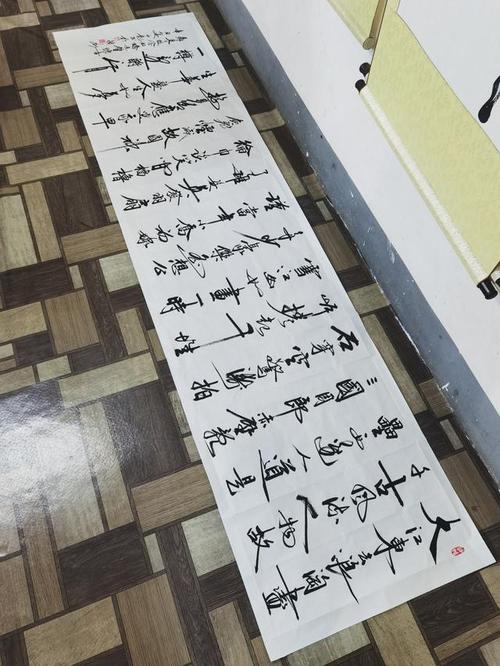 大江東去浪淘盡
千古風流人物故
壘西邊人道是
三國周郎赤壁亂
石穿空驚濤拍
岸捲起千堆
雪江山如畫一時
多少豪傑遙想公
瑾當年小喬初嫁
了雄姿英發羽扇
綸巾談笑間檣櫓
飛煙滅故國神
遊多情應笑我早
生華髮人生如夢
一樽還酹江月